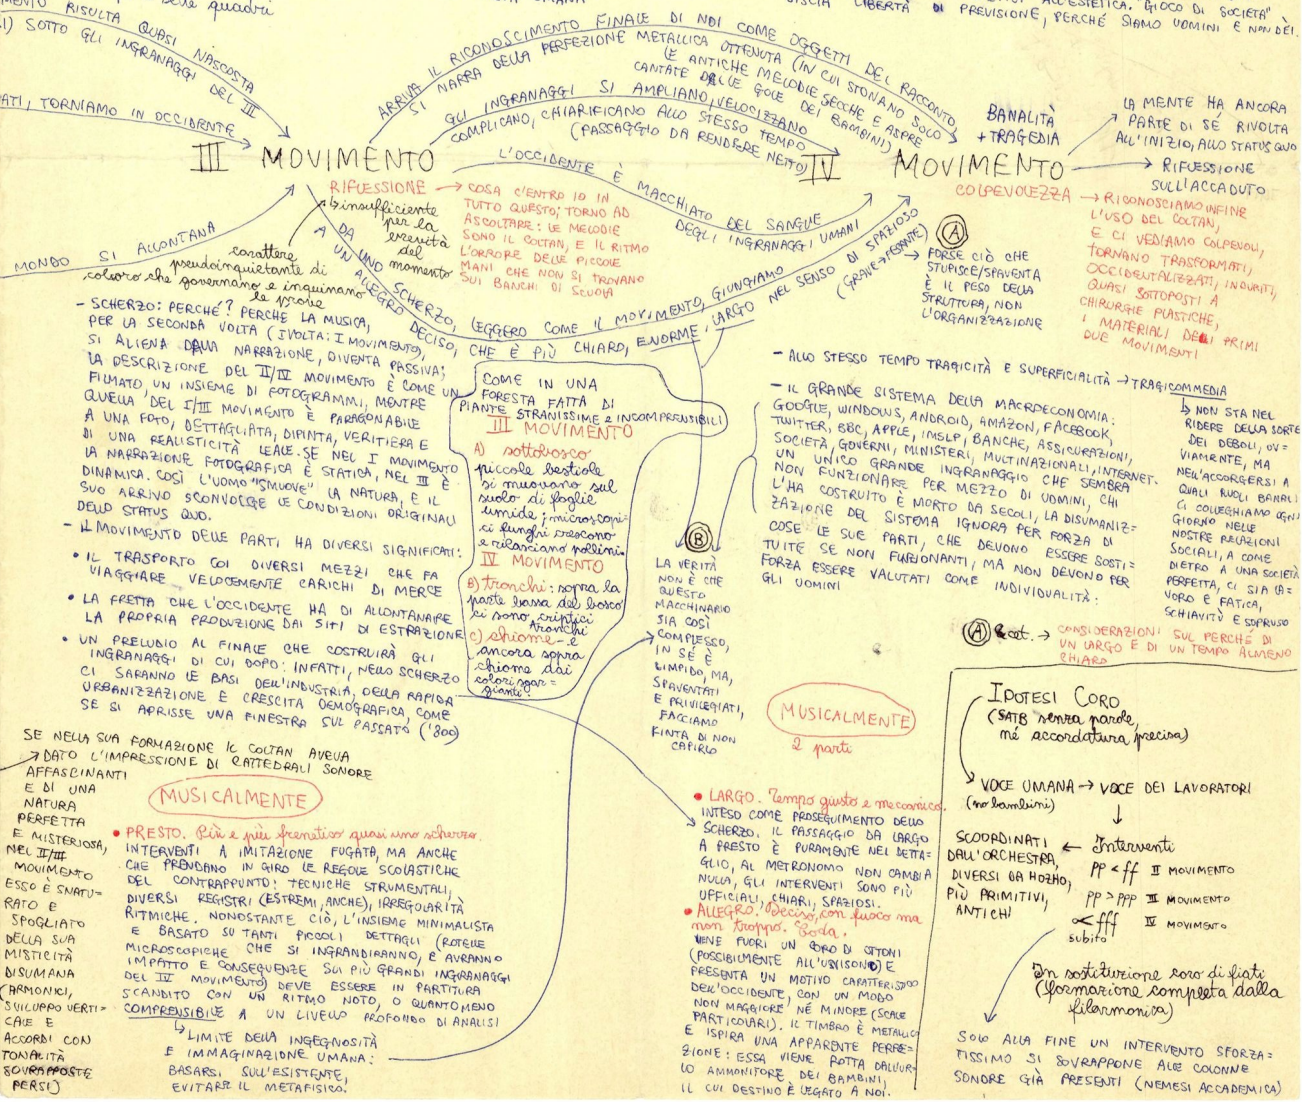 delle quadri
MENTO RISULTA QUASI NASCOSTA
SOTTO GLI INGRANAGGI DEL III
ATI, TORNIAMO IN OCCIDENTE
ARRIVA IL RICONOSCIMENTO FINALE DI NOI COME OGGETTI DEL RACCONTO
SI NARRA DELLA PERFEZIONE METALLICA OTTENUTA (IN CUI STONANO SOLO
LE ANTICHE MELODIE SECCHE E ASPRE
CANTATE DALLE GOLE DEI BAMBINI)
GLI INGRANAGGI SI AMPLIANO, VELOCIZZANO
COMPLICANO, CHIARIFICANO ALLO STESSO TEMPO
(PASSAGGIO DA RENDERE NETTO)
LIBERTÀ DI PREVISIONE, PERCHÉ SIAMO UOMINI E NON DÈI.
ALL'ESTETICA. "GIOCO DI SOCIETÀ"
BANALITÀ
+ TRAGEDIA
LA MENTE HA ANCORA
PARTE DI SÉ RIVOLTA
ALL'INIZIO, ALLO STATUS QUO
RIFLESSIONE
SULL'ACCADUTO
III MOVIMENTO
IV MOVIMENTO
L'OCCIDENTE È MACCHIATO DEL SANGUE
DEGLI INGRANAGGI UMANI
RIFLESSIONE
insufficiente
per la
brevità
del
momento
COSA C'ENTRO IO IN
TUTTO QUESTO; TORNO AD
ASCOLTARE: LE MELODIE
SONO IL COLTAN, E IL RITMO
L'ORRORE DELLE PICCOLE
MANI CHE NON SI TROVANO
SUI BANCHI DI SCUOLA
COLPEVOLEZZA
RICONOSCIAMO INFINE
L'USO DEL COLTAN,
E CI VEDIAMO COLPEVOLI,
TORNANO TRASFORMATI,
OCCIDENTALIZZATI, INDURITI,
QUASI SOTTOPOSTI A
CHIRURGIE PLASTICHE,
I MATERIALI DEI PRIMI
DUE MOVIMENTI
A
FORSE CIÒ CHE
STUPISCE/SPAVENTA
È IL PESO DELLA
STRUTTURA, NON
L'ORGANIZZAZIONE
MONDO SI ALLONTANA
carattere
pseudoinquietante di
coloro che governano e inquinano
le prove
DA UNO SCHERZO, LEGGERO COME IL MOVIMENTO, GIUNGIAMO
A UN ALLEGRO DECISO, CHE È PIÙ CHIARO, ENORME, LARGO NEL SENSO DI SPAZIOSO
(GRAVE → PESANTE)
- SCHERZO: PERCHÉ? PERCHÉ LA MUSICA,
PER LA SECONDA VOLTA (I VOLTA: I MOVIMENTO),
SI ALIENA DALLA NARRAZIONE, DIVENTA PASSIVA;
LA DESCRIZIONE DEL II/IV MOVIMENTO È COME UN
FILMATO, UN INSIEME DI FOTOGRAMMI, MENTRE
QUELLA DEL I/III MOVIMENTO È PARAGONABILE
A UNA FOTO, DETTAGLIATA, DIPINTA, VERITIERA E
DI UNA REALISTICITÀ LEALE. SE NEL I MOVIMENTO
LA NARRAZIONE FOTOGRAFICA È STATICA, NEL III È
DINAMICA. COSÌ L'UOMO "SMUOVE" LA NATURA, E IL
SUO ARRIVO SCONVOLGE LE CONDIZIONI ORIGINALI
DELLO STATUS QUO.
- IL MOVIMENTO DELLE PARTI HA DIVERSI SIGNIFICATI:
• IL TRASPORTO COI DIVERSI MEZZI CHE FA
VIAGGIARE VELOCEMENTE CARICHI DI MERCE
• LA FRETTA CHE L'OCCIDENTE HA DI ALLONTANARE
LA PROPRIA PRODUZIONE DAI SITI DI ESTRAZIONE
• UN PRELUDIO AL FINALE CHE COSTRUIRÀ GLI
INGRANAGGI DI CUI DOPO: INFATTI, NELLO SCHERZO
CI SARANNO LE BASI DELL'INDUSTRIA, DELLA RAPIDA
URBANIZZAZIONE E CRESCITA DEMOGRAFICA, COME
SE SI APRISSE UNA FINESTRA SUL PASSATO ('800)
COME IN UNA
FORESTA FATTA DI
PIANTE STRANISSIME E INCOMPRENSIBILI
III MOVIMENTO
A) sottobosco
piccole bestiole
si muovano sul
suolo di foglie
umide; microscopi-
ci funghi crescono
e rilasciano pollini.
IV MOVIMENTO
B) tronchi: sopra la
parte bassa del bosco
ci sono, criptici
tronchi
C) chiome - e
ancora sopra
chiome dai
colori sgar-
gianti.
B
LA VERITÀ
NON È CHE
QUESTO
MACCHINARIO
SIA COSÌ
COMPLESSO,
IN SÉ È
LIMPIDO, MA,
SPAVENTATI
E PRIVILEGIATI,
FACCIAMO
FINTA DI NON
CAPIRLO
- ALLO STESSO TEMPO TRAGICITÀ E SUPERFICIALITÀ → TRAGICOMMEDIA
NON STA NEL
RIDERE DELLA SORTE
DEI DEBOLI, OV=
VIAMENTE, MA
NELL'ACCORGERSI A
QUALI RUOLI BANALI
CI COLLEGHIAMO OGNI
GIORNO NELLE
NOSTRE RELAZIONI
SOCIALI, A COME
DIETRO A UNA SOCIETÀ
PERFETTA, CI SIA LA=
VORO E FATICA,
SCHIAVITÙ E SOPRUSO
- IL GRANDE SISTEMA DELLA MACROECONOMIA:
GOOGLE, WINDOWS, ANDROID, AMAZON, FACEBOOK,
TWITTER, BBC, APPLE, IMSLP, BANCHE, ASSICURAZIONI,
SOCIETÀ, GOVERNI, MINISTERI, MULTINAZIONALI, INTERNET.
UN UNICO GRANDE INGRANAGGIO CHE SEMBRA
NON FUNZIONARE PER MEZZO DI UOMINI, CHI
L'HA COSTRUITO È MORTO DA SECOLI, LA DISUMANIZ=
ZAZIONE DEL SISTEMA IGNORA PER FORZA DI
COSE LE SUE PARTI, CHE DEVONO ESSERE SOSTI=
TUITE SE NON FUNZIONANTI, MA NON DEVONO PER
FORZA ESSERE VALUTATI COME INDIVIDUALITÀ:
GLI UOMINI
A & cet. → CONSIDERAZIONI SUL PERCHÉ DI
UN LARGO E DI UN TEMPO ALMENO
CHIARO
SE NELLA SUA FORMAZIONE IL COLTAN AVEVA
DATO L'IMPRESSIONE DI CATTEDRALI SONORE
AFFASCINANTI
E DI UNA
NATURA
PERFETTA
E MISTERIOSA,
NEL II/III
MOVIMENTO
ESSO È SNATU=
RATO E
SPOGLIATO
DELLA SUA
MISTICITÀ
DISUMANA
(ARMONICI,
SVILUPPO VERTI=
CALE E
ACCORDI CON
TONALITÀ
SOVRAPPOSTE
PERSI)
MUSICALMENTE
• PRESTO. Più e più frenetico quasi uno scherzo.
INTERVENTI A IMITAZIONE FUGATA, MA ANCHE
CHE PRENDANO IN GIRO LE REGOLE SCOLASTICHE
DEL CONTRAPPUNTO: TECNICHE STRUMENTALI,
DIVERSI REGISTRI (ESTREMI, ANCHE), IRREGOLARITÀ
RITMICHE. NONOSTANTE CIÒ, L'INSIEME MINIMALISTA
E BASATO SU TANTI PICCOLI DETTAGLI (ROTELLE
MICROSCOPICHE CHE SI INGRANDIRANNO, E AVRANNO
IMPATTO E CONSEGUENZE SUI PIÙ GRANDI INGRANAGGI
DEL IV MOVIMENTO) DEVE ESSERE IN PARTITURA
SCANDITO CON UN RITMO NOTO, O QUANTOMENO
COMPRENSIBILE A UN LIVELLO PROFONDO DI ANALISI
LIMITE DELLA INGEGNOSITÀ
E IMMAGINAZIONE UMANA:
BASARSI SULL'ESISTENTE,
EVITARE IL METAFISICO.
MUSICALMENTE
2 parti
• LARGO. Tempo giusto e meccanico.
INTESO COME PROSEGUIMENTO DELLO
SCHERZO. IL PASSAGGIO DA LARGO
A PRESTO È PURAMENTE NEL DETTA=
GLIO, AL METRONOMO NON CAMBIA
NULLA, GLI INTERVENTI SONO PIÙ
UFFICIALI, CHIARI, SPAZIOSI.
• ALLEGRO. Deciso, con fuoco ma
non troppo. Coda.
VIENE FUORI UN CORO DI OTTONI
(POSSIBILMENTE ALL'UNISONO) E
PRESENTA UN MOTIVO CARATTERISTICO
DELL'OCCIDENTE, CON UN MODO
NON MAGGIORE NÉ MINORE (SCALE
PARTICOLARI). IL TIMBRO È METALLICO
E ISPIRA UNA APPARENTE PERFE=
ZIONE: ESSA VIENE ROTTA DALL'UR=
LO AMMONITORE DEI BAMBINI,
IL CUI DESTINO È LEGATO A NOI.
IPOTESI CORO
(SATB senza parole,
né accordatura precisa)
VOCE UMANA → VOCE DEI LAVORATORI
(no bambini)
Interventi
SCOORDINATI
DALL'ORCHESTRA,
DIVERSI DA HOZHO,
PIÙ PRIMITIVI,
ANTICHI
pp < ff II MOVIMENTO
pp > ppp III MOVIMENTO
fff IV MOVIMENTO
subito
In sostituzione coro di fiati
(formazione completa dalla
filarmonica)
SOLO ALLA FINE UN INTERVENTO SFORZA=
TISSIMO SI SOVRAPPONE ALLE COLONNE
SONORE GIÀ PRESENTI (NEMESI ACCADEMICA)